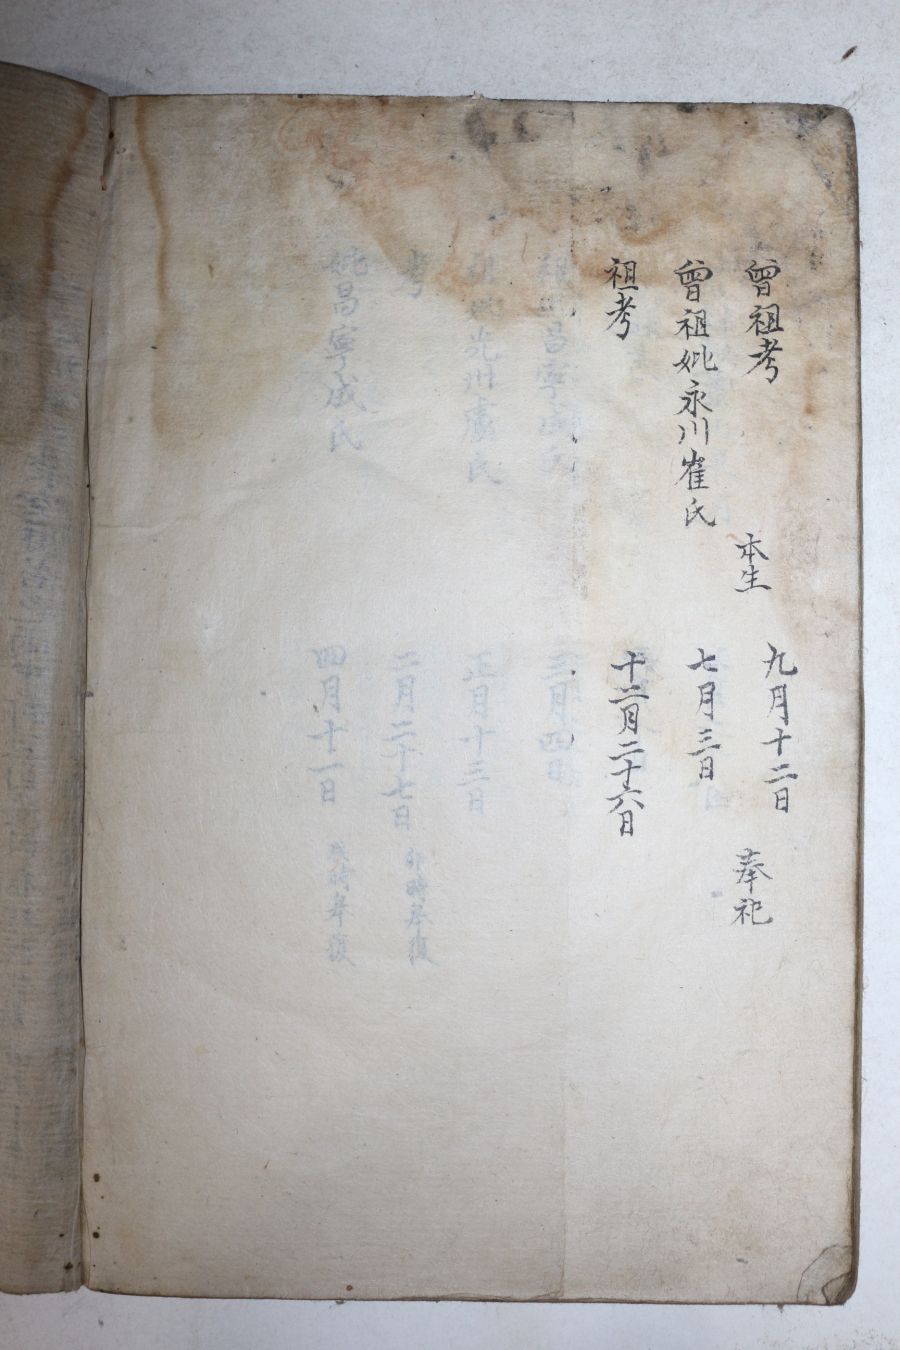 曾祖考 九月十二日
本生 奉祀
曾祖妣永川崔氏 七月三日
祖考 十二月二十六日
祖妣昌寧成氏 三月四日
祖妣光州盧氏 正月十三日
考 二月二十七日 卯時卒復
妣昌寧成氏 四月十一日 戌時卒復